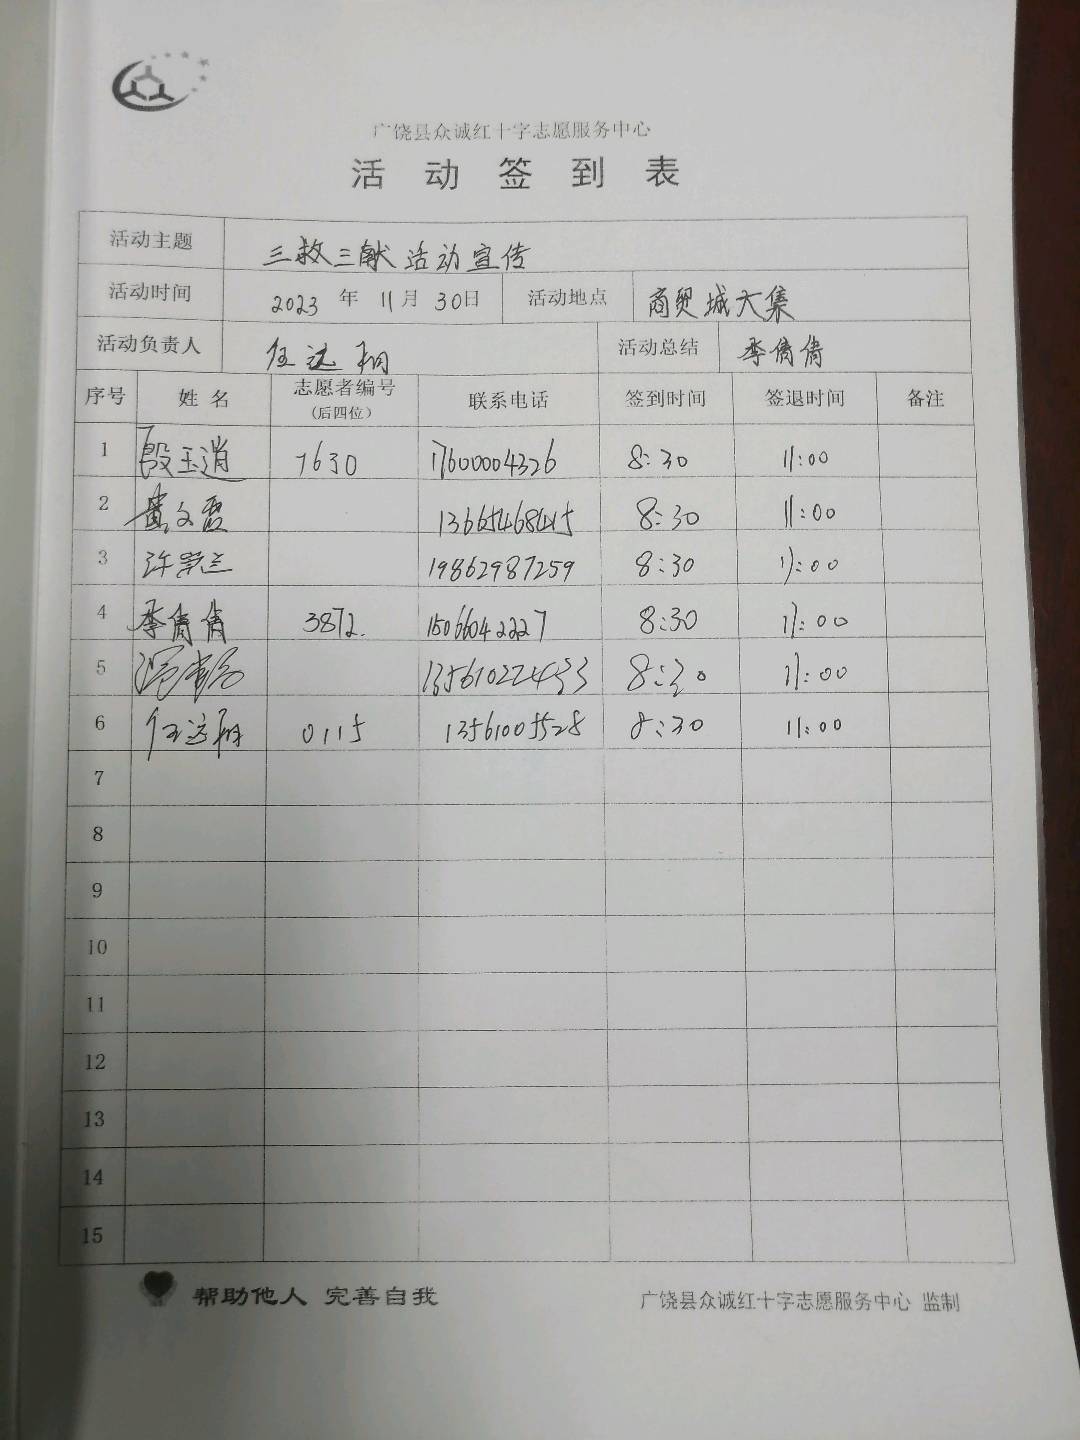 广饶县众诚红十字志愿服务中心
活动签到表
活动主题 三救三献活动宣传
活动时间 2023 年 11月 30日 活动地点 商贸城大集
活动负责人 任达翔 活动总结 李倩倩
序号 姓名 志愿者编号 (后四位) 联系电话 签到时间 签退时间 备注
1 殷玉逍 7630 17600004326 8:30 11:00
2 黄文霞 13665468415 8:30 11:00
3 许 19862987259 8:30 11:00
4 李倩倩 3872. 15066042227 8:30 11:00
5 13561022433 8:30 11:00
6 任达翔 0115 13561005528 8:30 11:00
7
8
9
10
11
12
13
14
15
帮助他人 完善自我 广饶县众诚红十字志愿服务中心 监制